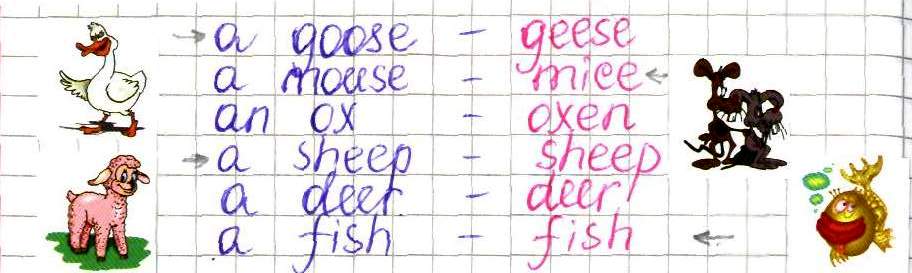 a goose - geese
a mouse - mice
an ox - oxen
a sheep - sheep
a deer - deer
a fish - fish